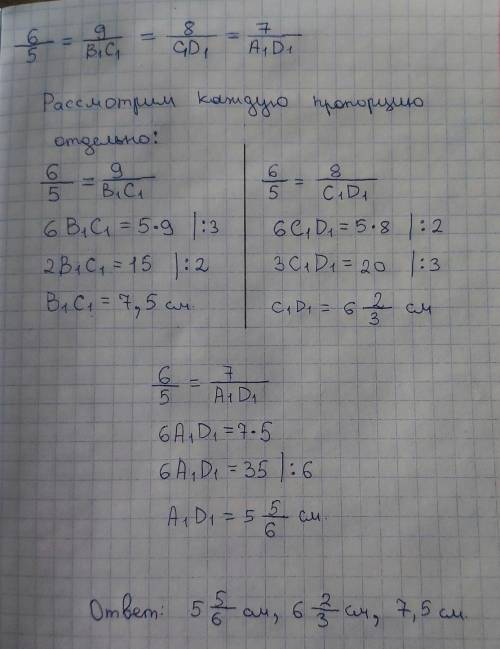 6/5 = 9/B₁C₁ = 8/C₁D₁ = 7/A₁D₁
Рассмотрим каждую пропорцию
отдельно:
6/5 = 9/B₁C₁
6B₁C₁ = 5·9 |:3
2B₁C₁ = 15 |:2
B₁C₁ = 7,5 см.
6/5 = 8/C₁D₁
6C₁D₁ = 5·8 |:2
3C₁D₁ = 20 |:3
C₁D₁ = 6 2/3 см
6/5 = 7/A₁D₁
6A₁D₁ = 7·5
6A₁D₁ = 35 |:6
A₁D₁ = 5 5/6 см.
Ответ: 5 5/6 см, 6 2/3 см, 7,5 см.